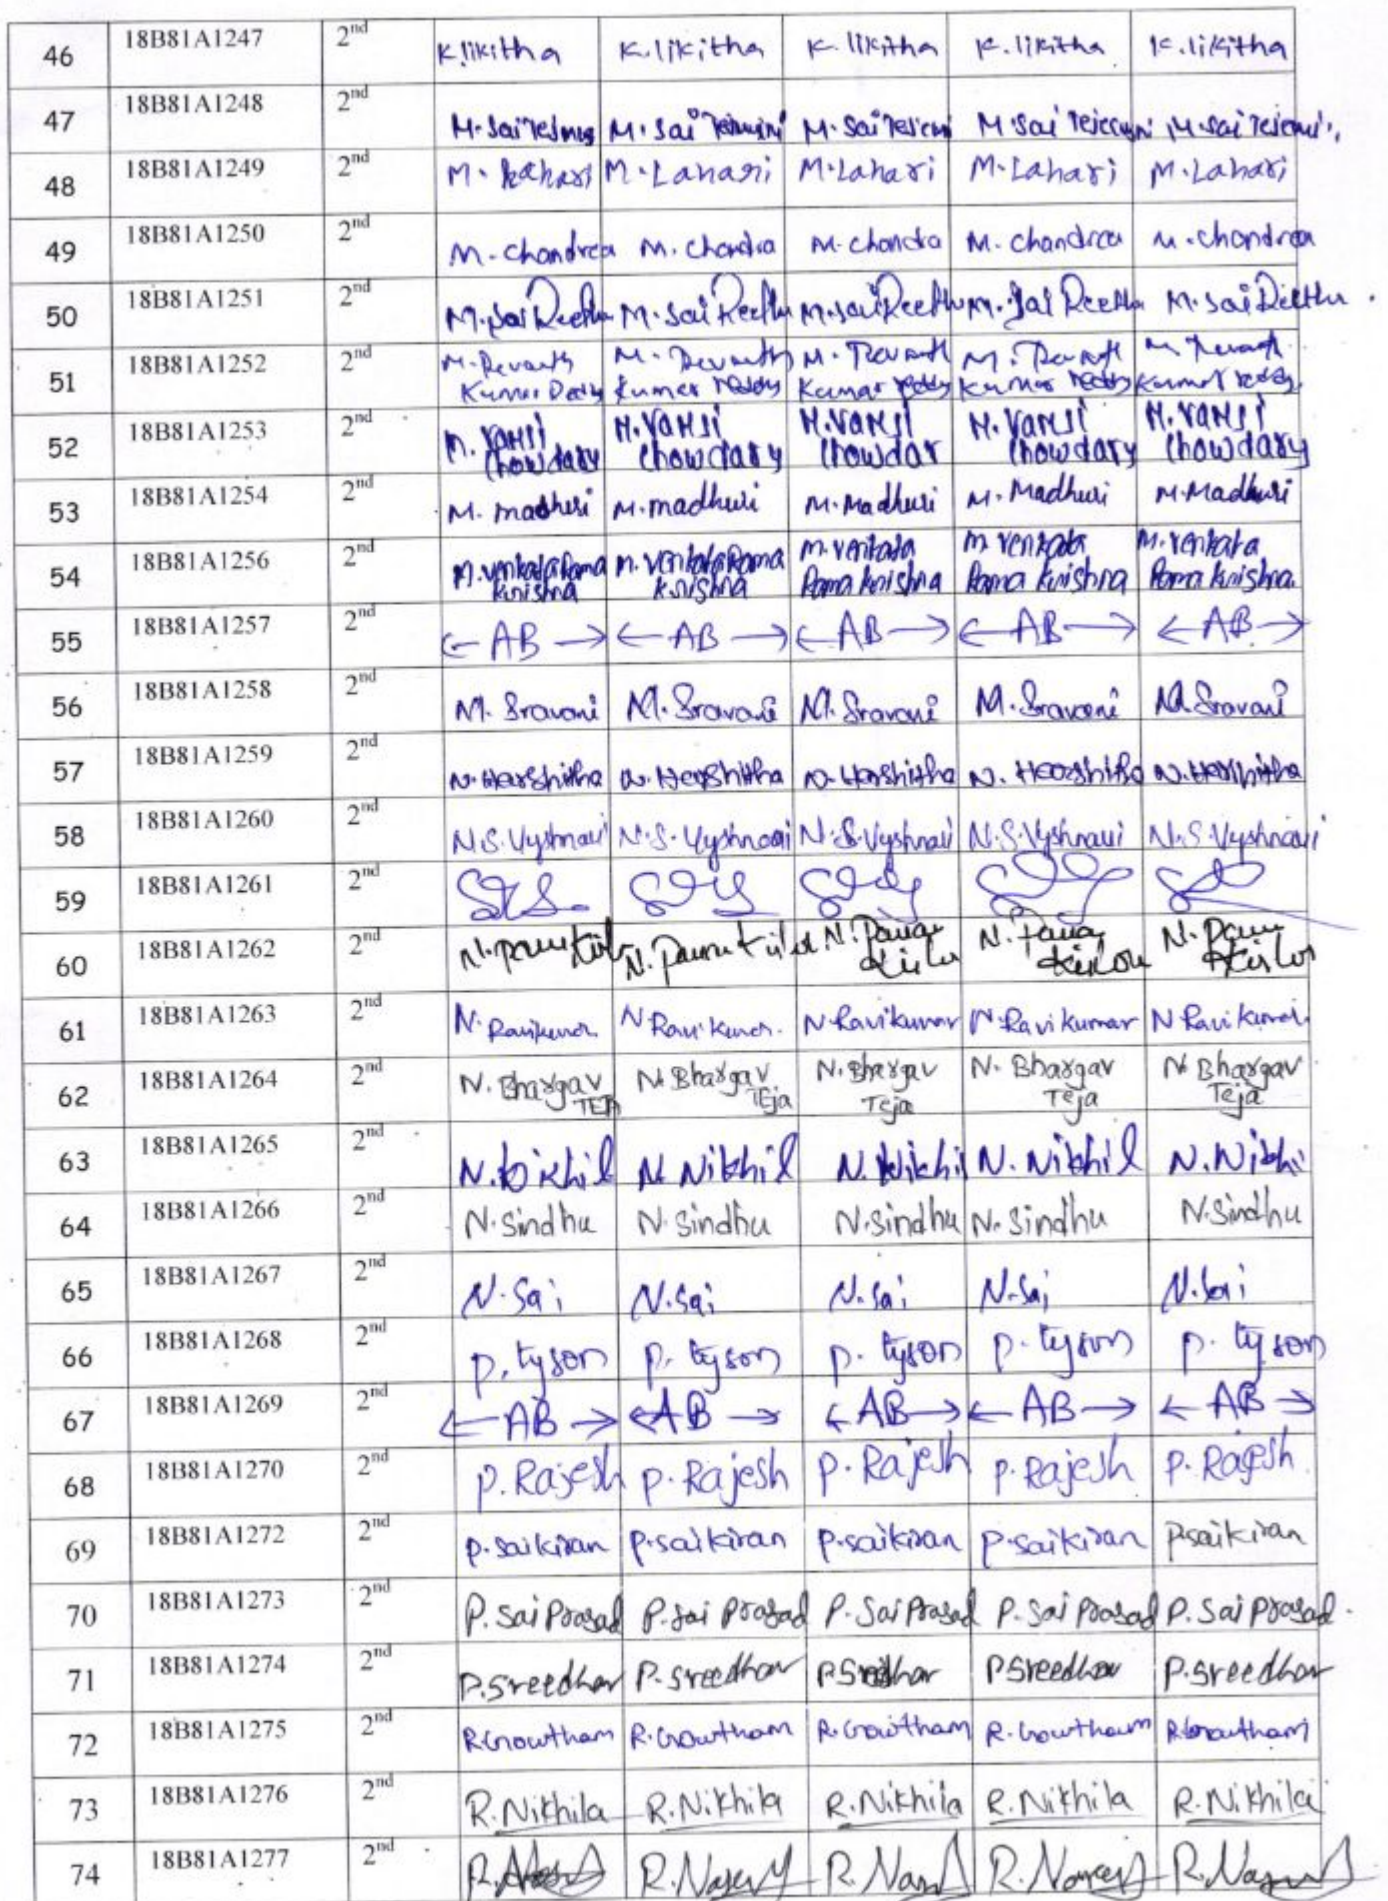 46 18B81A1247 2nd K.likitha K.likitha K.likitha K.likitha K.likitha
47 18B81A1248 2nd M.Sai M.Sai M.Sai M.Sai M.Sai
48 18B81A1249 2nd M.Lahari M.Lahari M.Lahari M.Lahari
49 18B81A1250 2nd M.chandra M.chandra M.chandra M.chandra M.chandra
50 18B81A1251 2nd M.Sai Reethu M.Sai Reethu M.Sai Reethu M.Sai Reethu M.Sai Reethu
51 18B81A1252 2nd M.Revanth M.Revanth M.Revanth M.Revanth M.Revanth
Kumar Reddy Kumar reddy Kumar reddy Kumar reddy Kumar reddy
52 18B81A1253 2nd M.VAMSI M.VAMSI M.VAMSI M.VAMSI M.VAMSI
Chowdary Chowdary Chowdar Chowdary Chowdary
53 18B81A1254 2nd M.madhuri M.madhuri M.Madhuri M.Madhuri M.Madhuri
54 18B81A1256 2nd M.Venkata Rama M.Venkata Rama M.Venkata M.Venkata M.Venkata
Krishna Krishna Rama Krishna Rama Krishna Rama Krishna
55 18B81A1257 2nd ← AB → ← AB → ← AB → ← AB → ← AB →
56 18B81A1258 2nd M.Sravani M.Sravani M.Sravani M.Sravani M.Sravani
57 18B81A1259 2nd N.Harshitha N.Harshitha N.Harshitha N.Harshitha N.Harshitha
58 18B81A1260 2nd N.S.Vyshnavi N.S.Vyshnavi N.S.Vyshnavi N.S.Vyshnavi N.S.Vyshnavi
59 18B81A1261 2nd
60 18B81A1262 2nd N. N. N. N. N.
61 18B81A1263 2nd N.Ravikumar N Ravi Kumar N Ravikumar N Ravikumar N Ravi Kumar
62 18B81A1264 2nd N.Bhargav N.Bhargav N.Bhargav N.Bhargav N.Bhargav
TEJA TEja Teja Teja Teja
63 18B81A1265 2nd N.Nikhil N.Nikhil N.Nikhil N.Nikhil N.Nikhi
64 18B81A1266 2nd N.Sindhu N.Sindhu N.Sindhu N.Sindhu N.Sindhu
65 18B81A1267 2nd N.Sai N.Sai N.Sai N.Sai N.Sai
66 18B81A1268 2nd P.tyson P.tyson P.tyson P.tyson P.tyson
67 18B81A1269 2nd ← AB → ← AB → ← AB → ← AB → ← AB →
68 18B81A1270 2nd P.Rajesh P.Rajesh P.Rajesh P.Rajesh P.Rajesh
69 18B81A1272 2nd P.saikiran P.saikiran P.saikiran P.saikiran P.saikiran
70 18B81A1273 2nd P.Sai Prasad P.Sai Prasad P.Sai Prasad P.Sai Prasad P.Sai Prasad
71 18B81A1274 2nd P.Sreedhar P.Sreedhar P.Sreedhar P.Sreedhar P.Sreedhar
72 18B81A1275 2nd R.Gowtham R.Gowtham R.Gowtham R.Gowtham R.Gowtham
73 18B81A1276 2nd R.Nikhila R.Nikhila R.Nikhila R.Nikhila R.Nikhila
74 18B81A1277 2nd R. R. R. R. R.